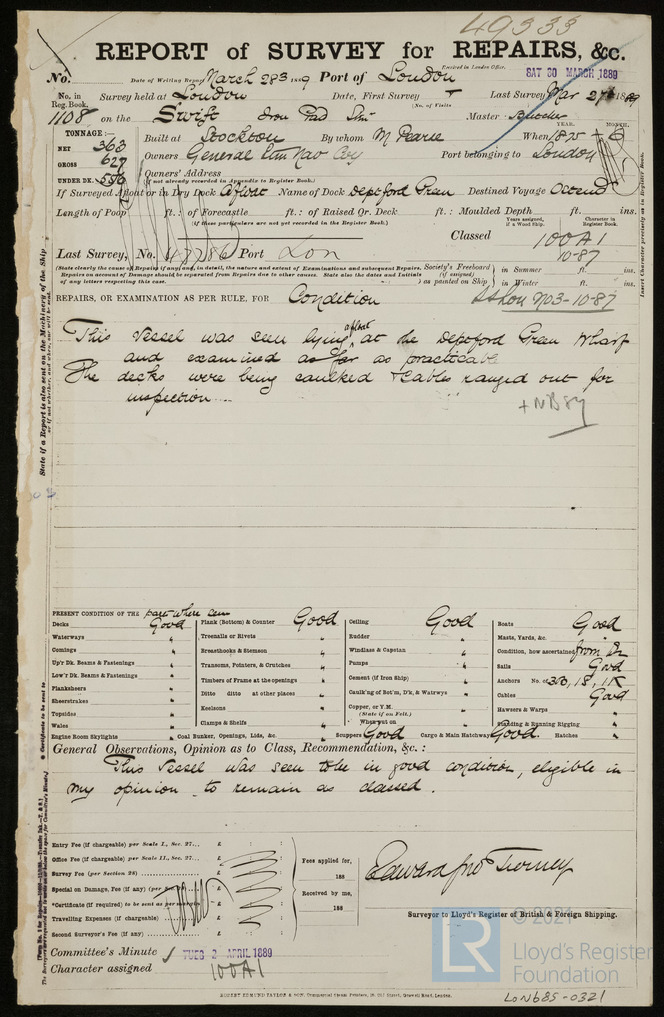 49333
REPORT of SURVEY for REPAIRS, &c.
Received in London Office.
No. Date of Writing Report March 28 3 1889 Port of London SAT 30 MARCH 1889
No. in Reg. Book. Survey held at London Date, First Survey Last Survey Mar 27 1889
(No. of Visits
1108 on the Swift Iron Pad Smr Master
TONNAGE:— YEAR. MONTH.
NET 363 Built at Stockton By whom M Pearse When 1875 - 6
GROSS 627 Owners General Stm Nav Coy Port belonging to London
UNDER DK. 556 Owners' Address
(If not already recorded in Appendix to Register Book.)
If Surveyed Afloat or in Dry Dock Afloat Name of Dock Deptford Green Destined Voyage Ostend
Length of Poop ft.: of Forecastle ft.: of Raised Qr. Deck ft.: Moulded Depth ft. ins.
(If these particulars are not yet recorded in the Register Book.)
Years assigned, if a Wood Ship. Character in Register Book.
Classed 100A1
10-87
Last Survey, No. 47786 Port Lon
(State clearly the cause of Repairs if any, and, in detail, the nature and extent of Examinations and subsequent Repairs.
Repairs on account of Damage should be separated from Repairs due to other causes. State also the dates and Initials
of any letters respecting this case.
Society's Freeboard (if assigned) as painted on Ship in Summer ft. ins.
in Winter ft. ins.
REPAIRS, OR EXAMINATION AS PER RULE, FOR Condition
SSLon No3-10-87
This Vessel was seen lying afloat at the Deptford Green Wharf
and examined as far as practicable
The decks were being caulked + Cables ranged out for
inspection
+NB89
PRESENT CONDITION OF THE part where seen
Decks Good Plank (Bottom) & Counter Good Ceiling Good Boats Good
Waterways " Treenails or Rivets " Rudder " Masts, Yards, &c. "
Comings " Breasthooks & Stemson " Windlass & Capstan " Condition, how ascertained from Dk
Up'r Dk. Beams & Fastenings " Transoms, Pointers, & Crutches " Pumps " Sails Good
Low'r Dk. Beams & Fastenings " Timbers of Frame at the openings " Cement (if Iron Ship) " Anchors No. of 3B, 1S, 1K
Planksheers " Ditto ditto at other places " Caulk'g of Bot'm, D'k, & Watrwys " Cables Good
Sheerstrakes " Keelsons " Copper, or Y.M. Hawsers & Warps "
Topsides " Clamps & Shelfs " (State if on Felt.) Standing & Running Rigging "
Wales " When put on
Engine Room Skylights " Coal Bunker, Openings, Lids, &c. " Scuppers Good Cargo & Main Hatchway Good. Hatches "
General Observations, Opinion as to Class, Recommendation, &c.:
This Vessel was seen to be in good condition, eligible in
my opinion to remain as classed.
Entry Fee (if chargeable) per Scale I., Sec. 27... £
Office Fee (if chargeable) per Scale II., Sec. 27... £
Survey Fee (per Section 28) £
Special or Damage, Fee (if any) (per £
*Certificate (if required) to be sent as per margin £
Travelling Expenses (if chargeable) £
Second Surveyor's Fee (if any) £
Fees applied for, 188
Received by me, 188
Edward Jno Tierney
Surveyor to Lloyd's Register of British & Foreign Shipping.
Committee's Minute TUES 2 APRIL 1889
Character assigned 100A1
ROBERT EDMUND TAYLOR & SON, Commercial Steam Printers, 19, Old Street, Goswell Road, London.
LON685-0321
© 2021
LR
Lloyd's Register
Foundation
State if a Report is also sent on the Machinery of the Ship
* Certificate to be sent to
Insert Character precisely as in Register Book.